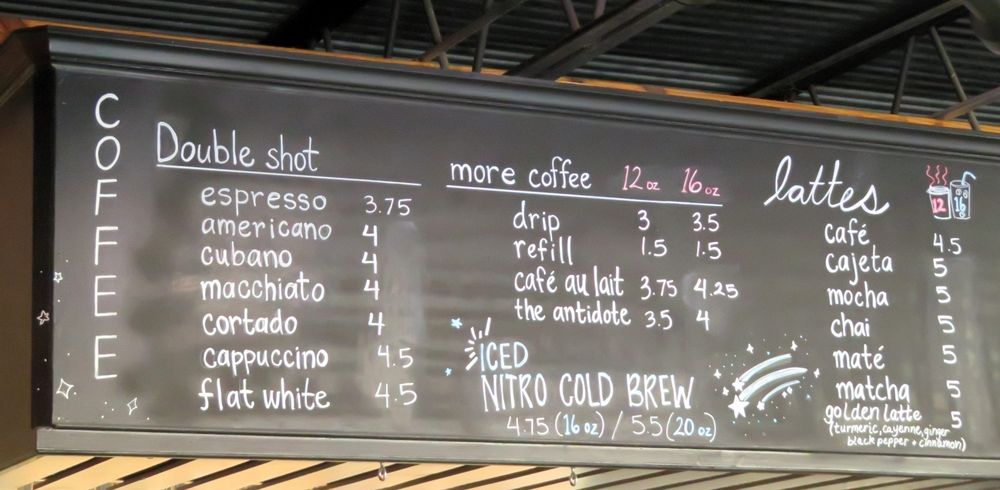 COFFEE
Double shot
espresso 3.75
americano 4
cubano 4
macchiato 4
cortado 4
cappuccino 4.5
flat white 4.5
more coffee 12 oz 16 oz
drip 3 3.5
refill 1.5 1.5
café au lait 3.75 4.25
the antidote 3.5 4
ICED
NITRO COLD BREW
4.75 (16 oz) / 5.5 (20 oz)
lattes 12 16
café 4.5
cajeta 5
mocha 5
chai 5
maté 5
matcha 5
golden latte 5
(turmeric, cayenne, ginger
black pepper + cinnamon)